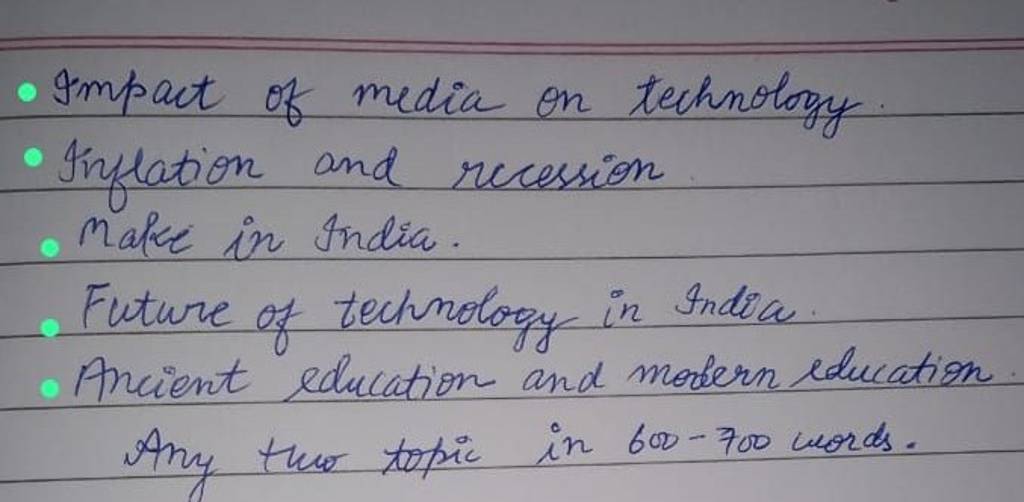 Impact of media on technology.
Inflation and recession.
Make in India.
Future of technology in India.
Ancient education and modern education.
Any two topic in 600-700 words.